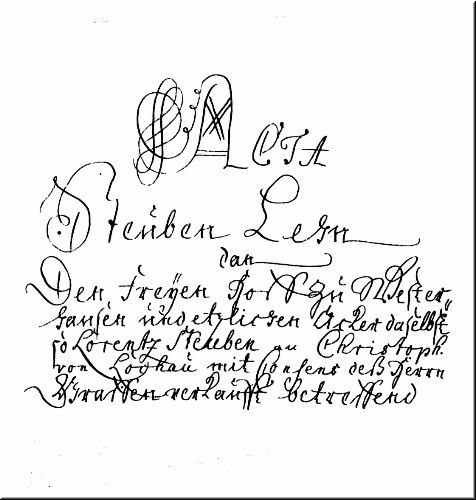 ACTA
Steuben Lehn
dan
Den Freyen Hoff zu Wester,,
hausen und etzlichen Acker daselbst
so Lorentz Steuben an Christoph
von Loghau mit Consens deß Herrn
Graffen verkaufft betreffend